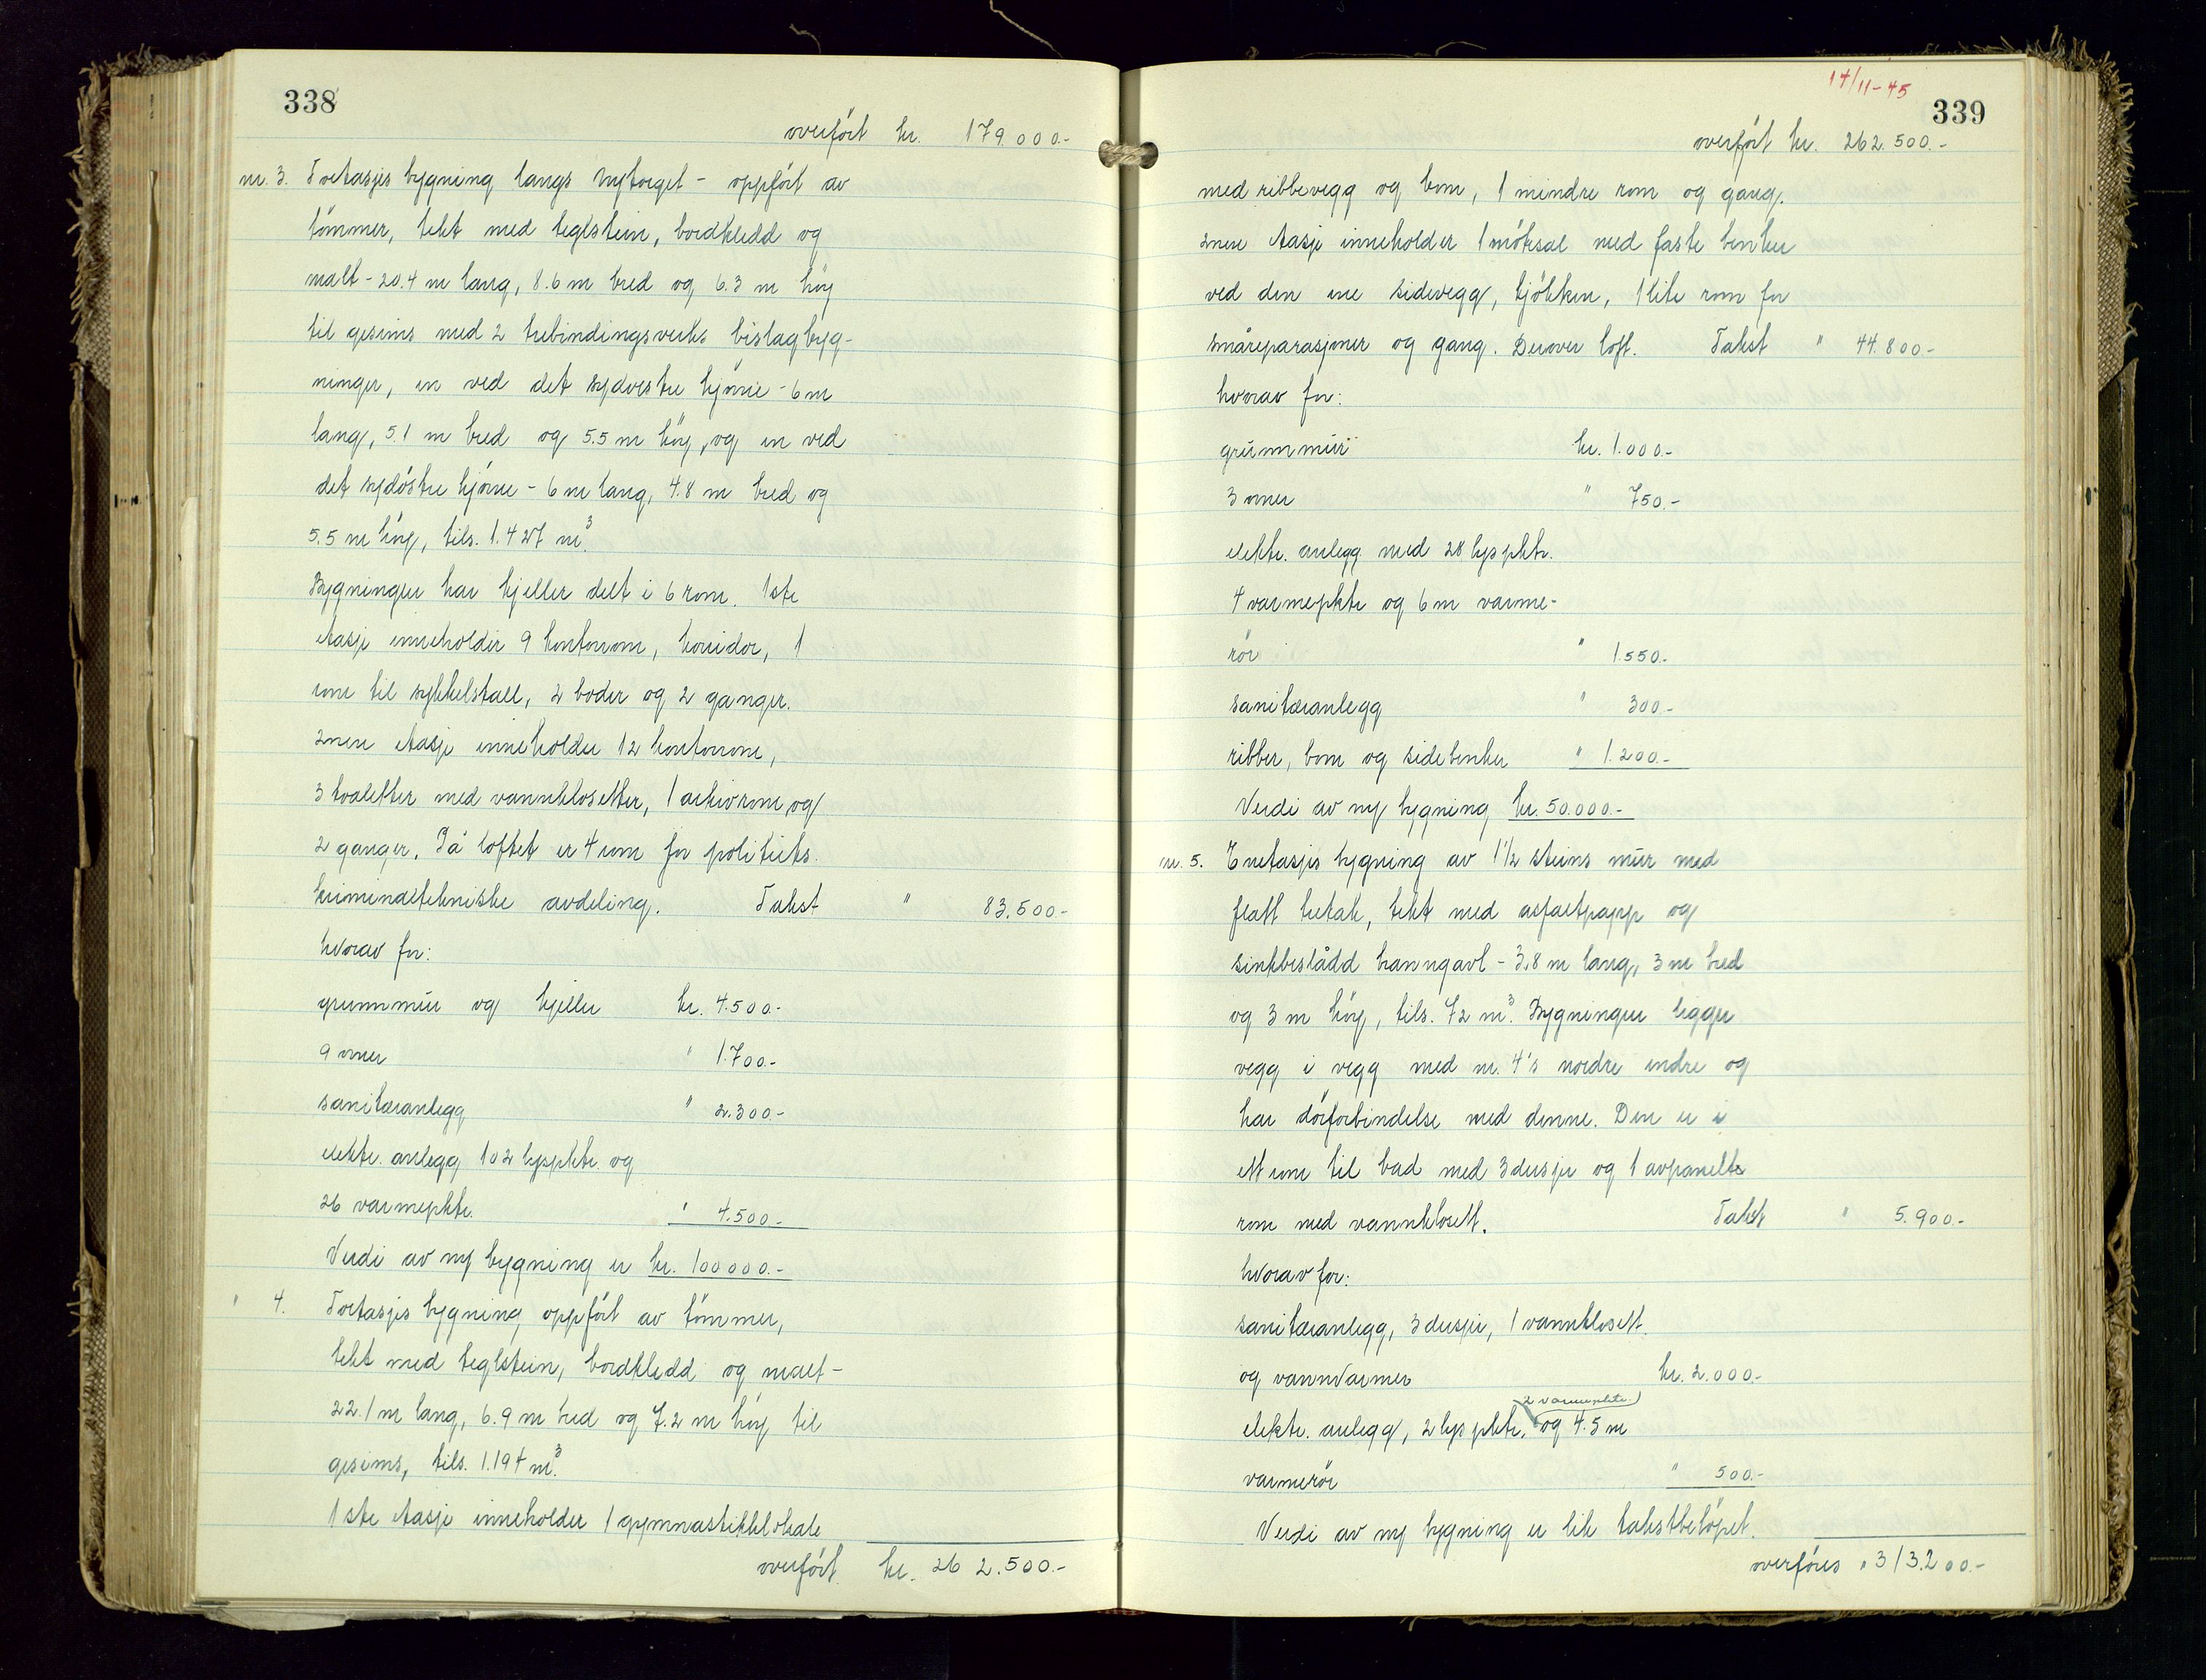 338
overfört kr. 179.000.-
nr. 3. Toetasjes bygning langs Nytorget - oppfört av
tömmer, tekt med teglstein, bordkledd og
malt - 20.4 m lang, 8.6 m bred og 6.3 m höy
til gesims med 2 trebindingsverks bislagbyg-
ninger, en ved det sydvestre hjörne - 6 m
lang, 5.1 m bred og 5.5 m höy, og en ved
det sydöstre hjörne - 6 m lang, 4.8 m bred og
5.5 m höy, tils. 1.427 m³.
Bygningen har kjeller delt i 6 rom. 1ste
etasje inneholder 9 kontorrom, korridor, 1
rom til sykkelstall, 2 boder og 2 ganger.
2nen etasje inneholder 12 kontorrom,
3 toaletter med vannklosetter, 1 arkivrom og
2 ganger. På loftet er 4 rom for politiets
kriminaltekniske avdeling. Takst " 83.500-
hvorav for:
grunnmur og kjeller kr. 4.500.-
9 ovner " 1.700.-
sanitæranlegg " 2.300-
elektr. anlegg 102 lyspktr. og
26 varmepktr. " 4.500-
Verdi av ny bygning er kr. 100000.-
" 4. Toetasjes bygning oppfört av tömmer,
tekt med teglstein, bordkledd og malt -
22.1 m lang, 6.9 m bred og 7.2 m höy til
gesims, tils. 1.194 m³.
1ste etasje inneholder 1 gymnastikklokale
overfört kr. 262.500-
14/11-45
339
overfört kr. 262.500.-
med ribbevegg og bom, 1 mindre rom og gang.
2nen etasje inneholder 1 mötesal med faste benker
ved den ene sidevegg, kjökken, 1 lite rom for
småreparasjoner og gang. Derover loft. Takst " 44.800-
hvorav for:
grunnmur kr. 1.000.-
3 ovner " 750.-
elektr. anlegg med 28 lyspktr.
4 varmepktr og 6 m varme-
rör " 1.550.-
sanitæranlegg " 300-
ribber, bom og sidebenker " 1.200.-
Verdi av ny bygning kr. 50.000.-
nr. 5. Enetasjes bygning av 1½ steins mur med
flatt tretak, tekt med asfaltpapp og
sinkbeslådd branngavl - 3.8 m lang, 3 m bred
og 3 m höy, tils. 72 m³. Bygningen ligger
vegg i vegg med nr. 4's nordre endre og
har dörforbindelse med denne. Den er i
ett rom til bad med 3 dusjer og 1 avpanelte
rom med vannklosett. Takst " 5.900-
hvorav for:
sanitæranlegg, 3 dusjer, 1 vannklosett
og vannvarmer kr. 2.000.-
2 varmepktr
elektr. anlegg, 2 lyspktr. og 4.5 m
varmerör " 500.-
Verdi av ny bygning er lik takstbelöpet.
overföres " 313.200.-